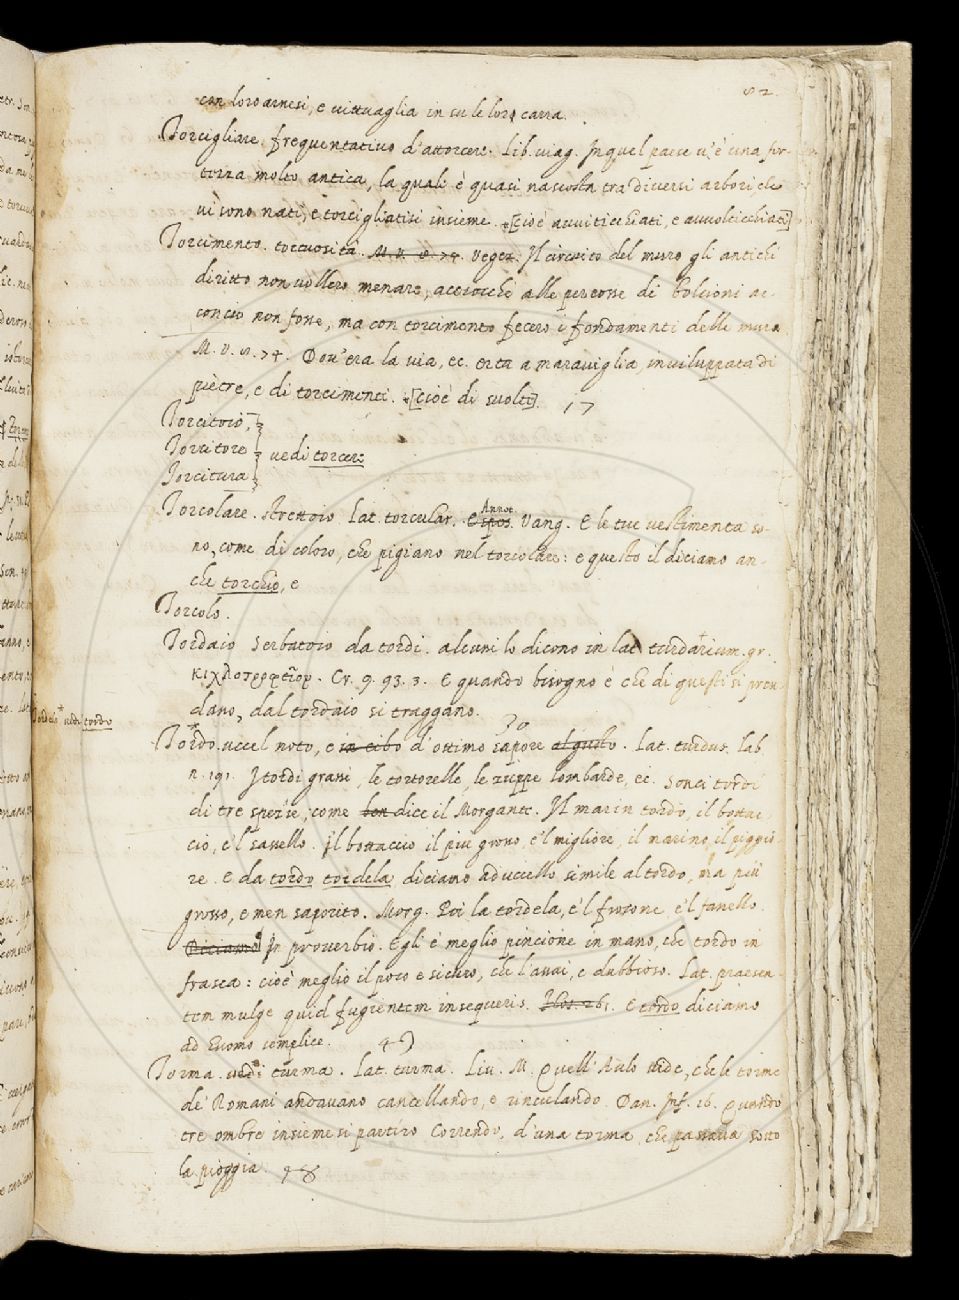 82
con loro arnesi, e vittuaglia in su le loro carra.
Torcigliare. frequentativo d'attorcere. Lib. viag. In quel paese v'è una for-
tezza molto antica, la quale è quasi nascosta tra diversi arbori, che
vi sono nati, e torcigliatisi insieme. [cioè avviticchiati, e avvolcicchiati]
Torcimento. tortuosità. M. V. 8. 74. Vegez. Il circuito del muro gli antichi
diritto non vollero menare, acciocchè alle percosse di bolcioni ac-
concio non fosse, ma con torcimento fecero i fondamenti delle mura
M. V. 8. 74. Dov'era la via, ec. erta a maraviglia inviluppata di
piètre, e di torcimenti. [cioè di svolte]. 17
Torcitoio,
Torcitore } vedi torcere
Torcitura
Torcolare. strettoio Lat. torcular. Espos. Annot. Vang. E le tue vestimenta so-
no, come di coloro, che pigiano nel torcolare: e questo il diciamo an-
che torchio, e
Torcolo.
Tordaio Serbatoio da tordi. alcuni lo dicono in lat turdarium. gr.
κιχλοτροφεῖον. Cr. 9. 93. 3. E quando bisogno è che di questi si pren-
dano, dal tordaio si traggano.
Tordelo vedi tordo
Tordo. uccel noto, e in cibo d'ottimo sapore al gusto. Lat. turdus. Lab. 30
n. 191. I tordi grassi, le tortorelle, le zuppe lombarde, ec. Sonci tordi
di tre spezie, come ben dice il Morgante. Il marin tordo, il bottac-
cio, e'l sassello. Il bottaccio il più grosso, e'l migliore, il marino, il piggio-
re. E da tordo tordela diciamo ad uccello simile al tordo, ma più
grosso, e men saporito. Morg. Poi la tordela, e'l frosone e'l fanello.
Diciamo In proverbio. Egli è meglio pincione in mano, che tordo in
frasca: cioè meglio il poco e sicuro, che l'assai, e dubbioso. Lat. praesen-
tem mulge quid fugientem insequeris. Flos. 261. E tordo diciamo
ad huomo semplice. 4
Torma. vedi turma. Lat. turma. Liv. M. Quelli Aulo vide, che le torme
de' Romani andavano cancellando, e rinculando. Dan. Inf. 16. Quando
tre ombre insieme si partiro Correndo, d'una torma, che passava sotto
la pioggia. 98